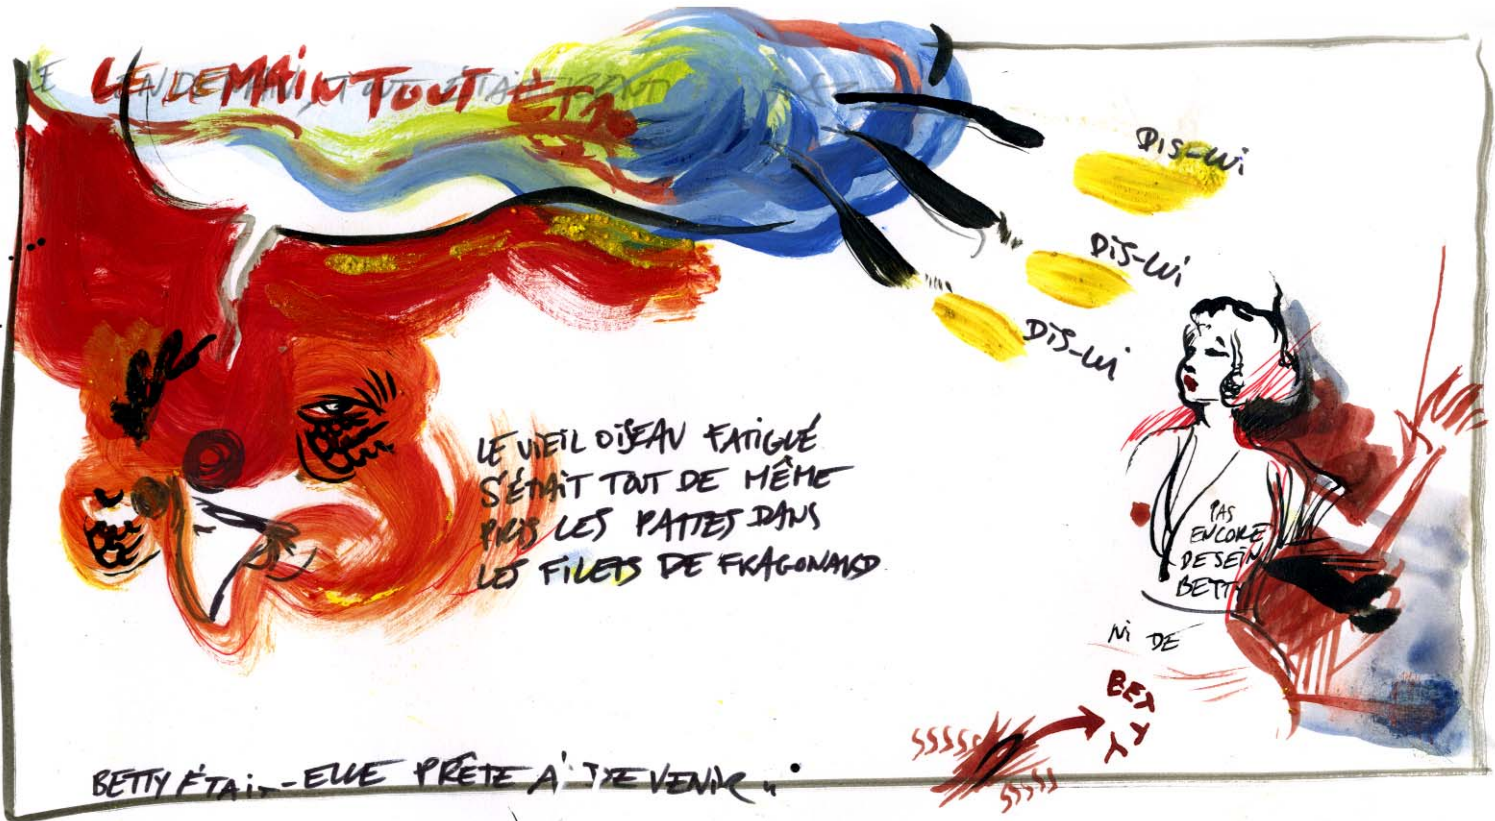 LE LENDEMAIN TOUT ÉTAIT
LENDEMAIN TOUT ÉTA
DIS-LUI
DIS-LUI
DIS-LUI
LE VIEIL OISEAU FATIGUÉ
S'ÉTAIT TOUT DE MÊME
PRIS LES PATTES DANS
LES FILETS DE FRAGONARD
PAS
ENCORE
DE SEIN
BETTY
NI DE
SSSSS
SSSSS
BETTY ÉTAIT-ELLE PRÊTE À DEVENIR